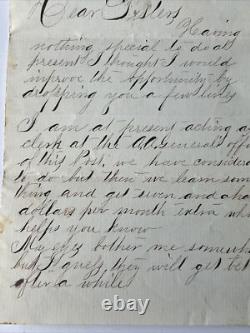 Dear Sister
Having
nothing special to do at
present I thought I would
improve the opportunity by
dropping you a few lines
I am at present acting as
clerk at the A. A. Generals off
of this Post. we have considera
to do but then we learn som
thing and get seven and a ha
dollars per month extra wh
helps you know
My eyes bother me somewh
but I guess they will get be
after a while
© ebay